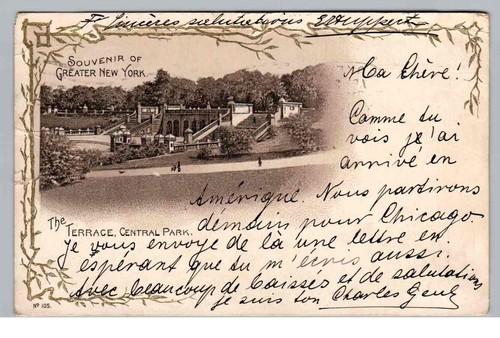 salutations
SOUVENIR OF
GREATER NEW YORK.
Ma Chère!
Comme tu
vois je j'ai
arrivé en
Amérique. Nous partirons
The
TERRACE, CENTRAL PARK.
demain pour Chicago
je vous envoye de là une lettre en
espérant que tu m'écris aussi.
Avec beaucoup de baisses et de salutations
je suis ton Charles
No 105.